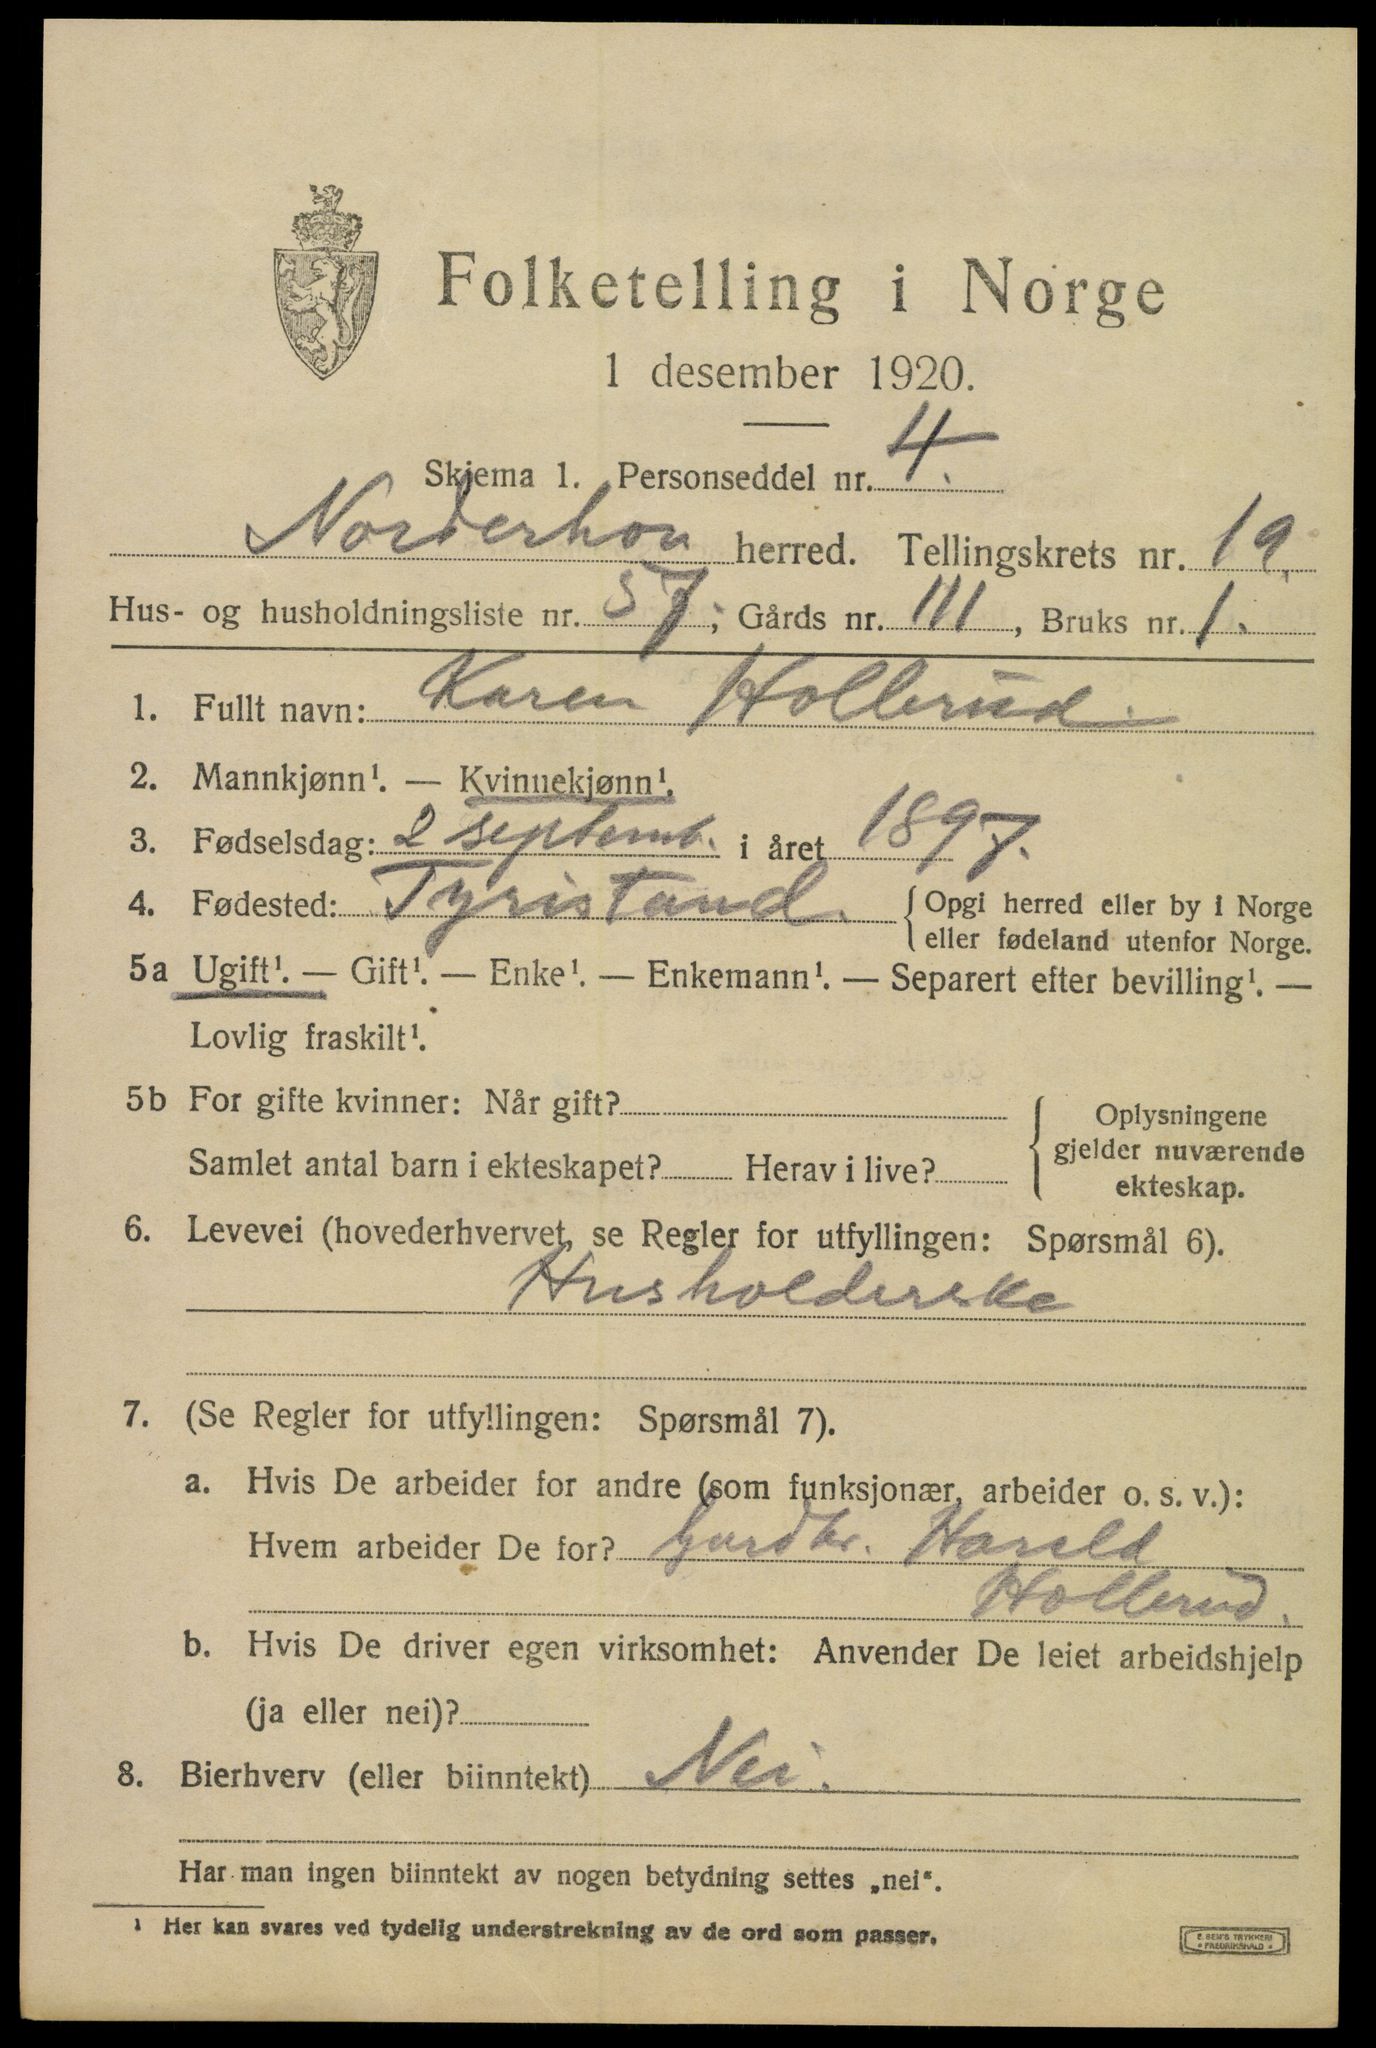 Folketelling i Norge
1 desember 1920.
Skjema 1. Personseddel nr. 4.
Norderhov herred. Tellingskrets nr. 19.
Hus- og husholdningsliste nr. 57; Gårds nr. 111, Bruks nr. 1.
1. Fullt navn: Karen Hollerud.
2. Mannkjønn¹. — Kvinnekjønn¹.
3. Fødselsdag: 2 septemb. i året 1897.
4. Fødested: Tyristand. { Opgi herred eller by i Norge
eller fødeland utenfor Norge.
5a Ugift¹. — Gift¹. — Enke¹. — Enkemann¹. — Separert efter bevilling¹. —
Lovlig fraskilt¹.
5b For gifte kvinner: Når gift?
Samlet antal barn i ekteskapet? Herav i live?
{ Oplysningene
gjelder nuværende
ekteskap.
6. Levevei (hovederhvervet, se Regler for utfyllingen: Spørsmål 6).
Husholderske
7. (Se Regler for utfyllingen: Spørsmål 7).
a. Hvis De arbeider for andre (som funksjonær, arbeider o. s. v.):
Hvem arbeider De for? Gardbr. Harald
Hollerud.
b. Hvis De driver egen virksomhet: Anvender De leiet arbeidshjelp
(ja eller nei)?
8. Bierhverv (eller biinntekt) Nei.
Har man ingen biinntekt av nogen betydning settes „nei“.
¹ Her kan svares ved tydelig understrekning av de ord som passer.
E. SEM'S TRYKKERI
• FREDRIKSHALD •